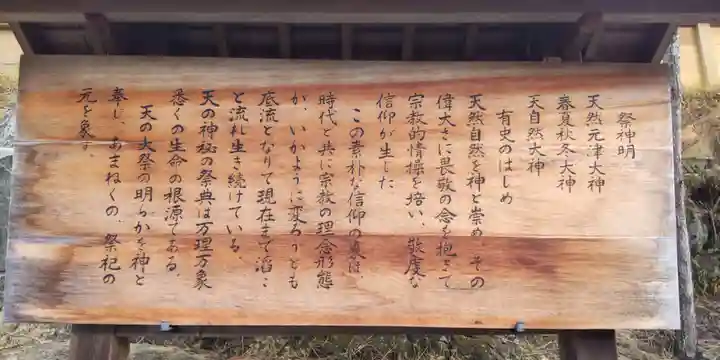 祭神明
天然元津大神
春夏秋冬大神
天自然大神
有史のはじめ
天然自然を神と崇め、その
偉大さに畏敬の念を抱きて
宗教的情操を培い、敬虔な
信仰が生じた
この素朴な信仰の道は、
時代と共に宗教の理念形態
が、いかように変ろうとも
底流となりて現在まで滔々
と流れ生き続けている。
天の神秘の祭典は万理万象
悉くの生命の根源である。
天の大祭の明らかを神と
奉じ、あまねくの、祭祀の
元を象す。